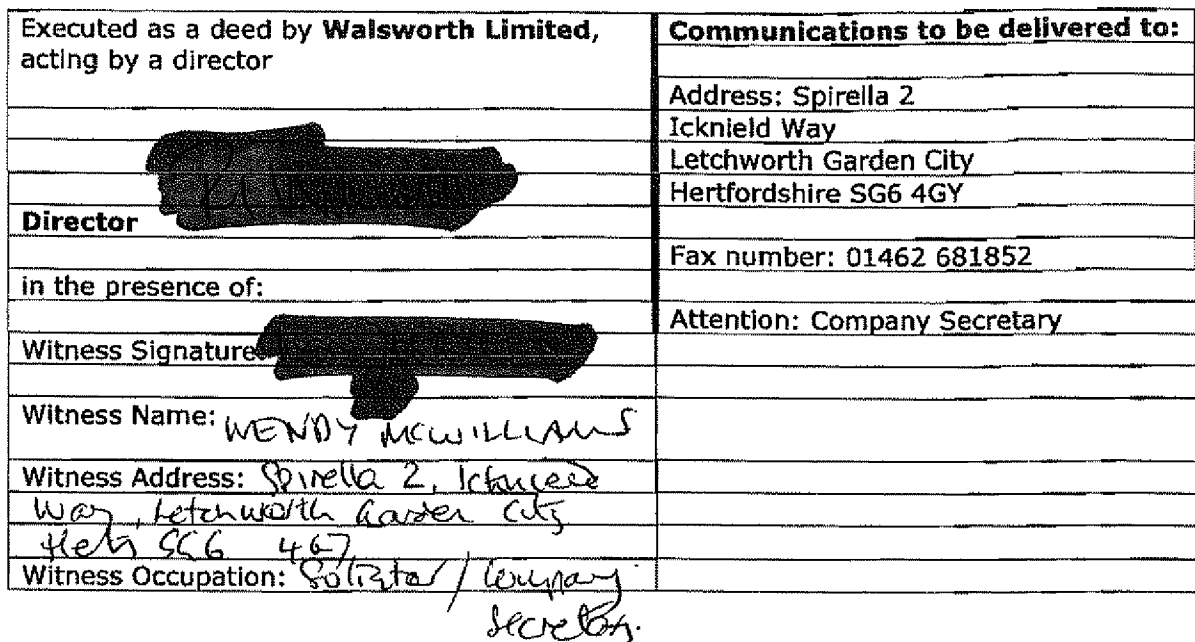 Executed as a deed by Walsworth Limited,
acting by a director
Director
in the presence of:
Witness Signature
Witness Name: WENDY MCWILLIAMS
Witness Address: Spirella 2, Icknield
Way, Letchworth Garden City
Herts SG6 4GY
Witness Occupation: Solicitor / Company
Secretary.
Communications to be delivered to:
Address: Spirella 2
Icknield Way
Letchworth Garden City
Hertfordshire SG6 4GY
Fax number: 01462 681852
Attention: Company Secretary